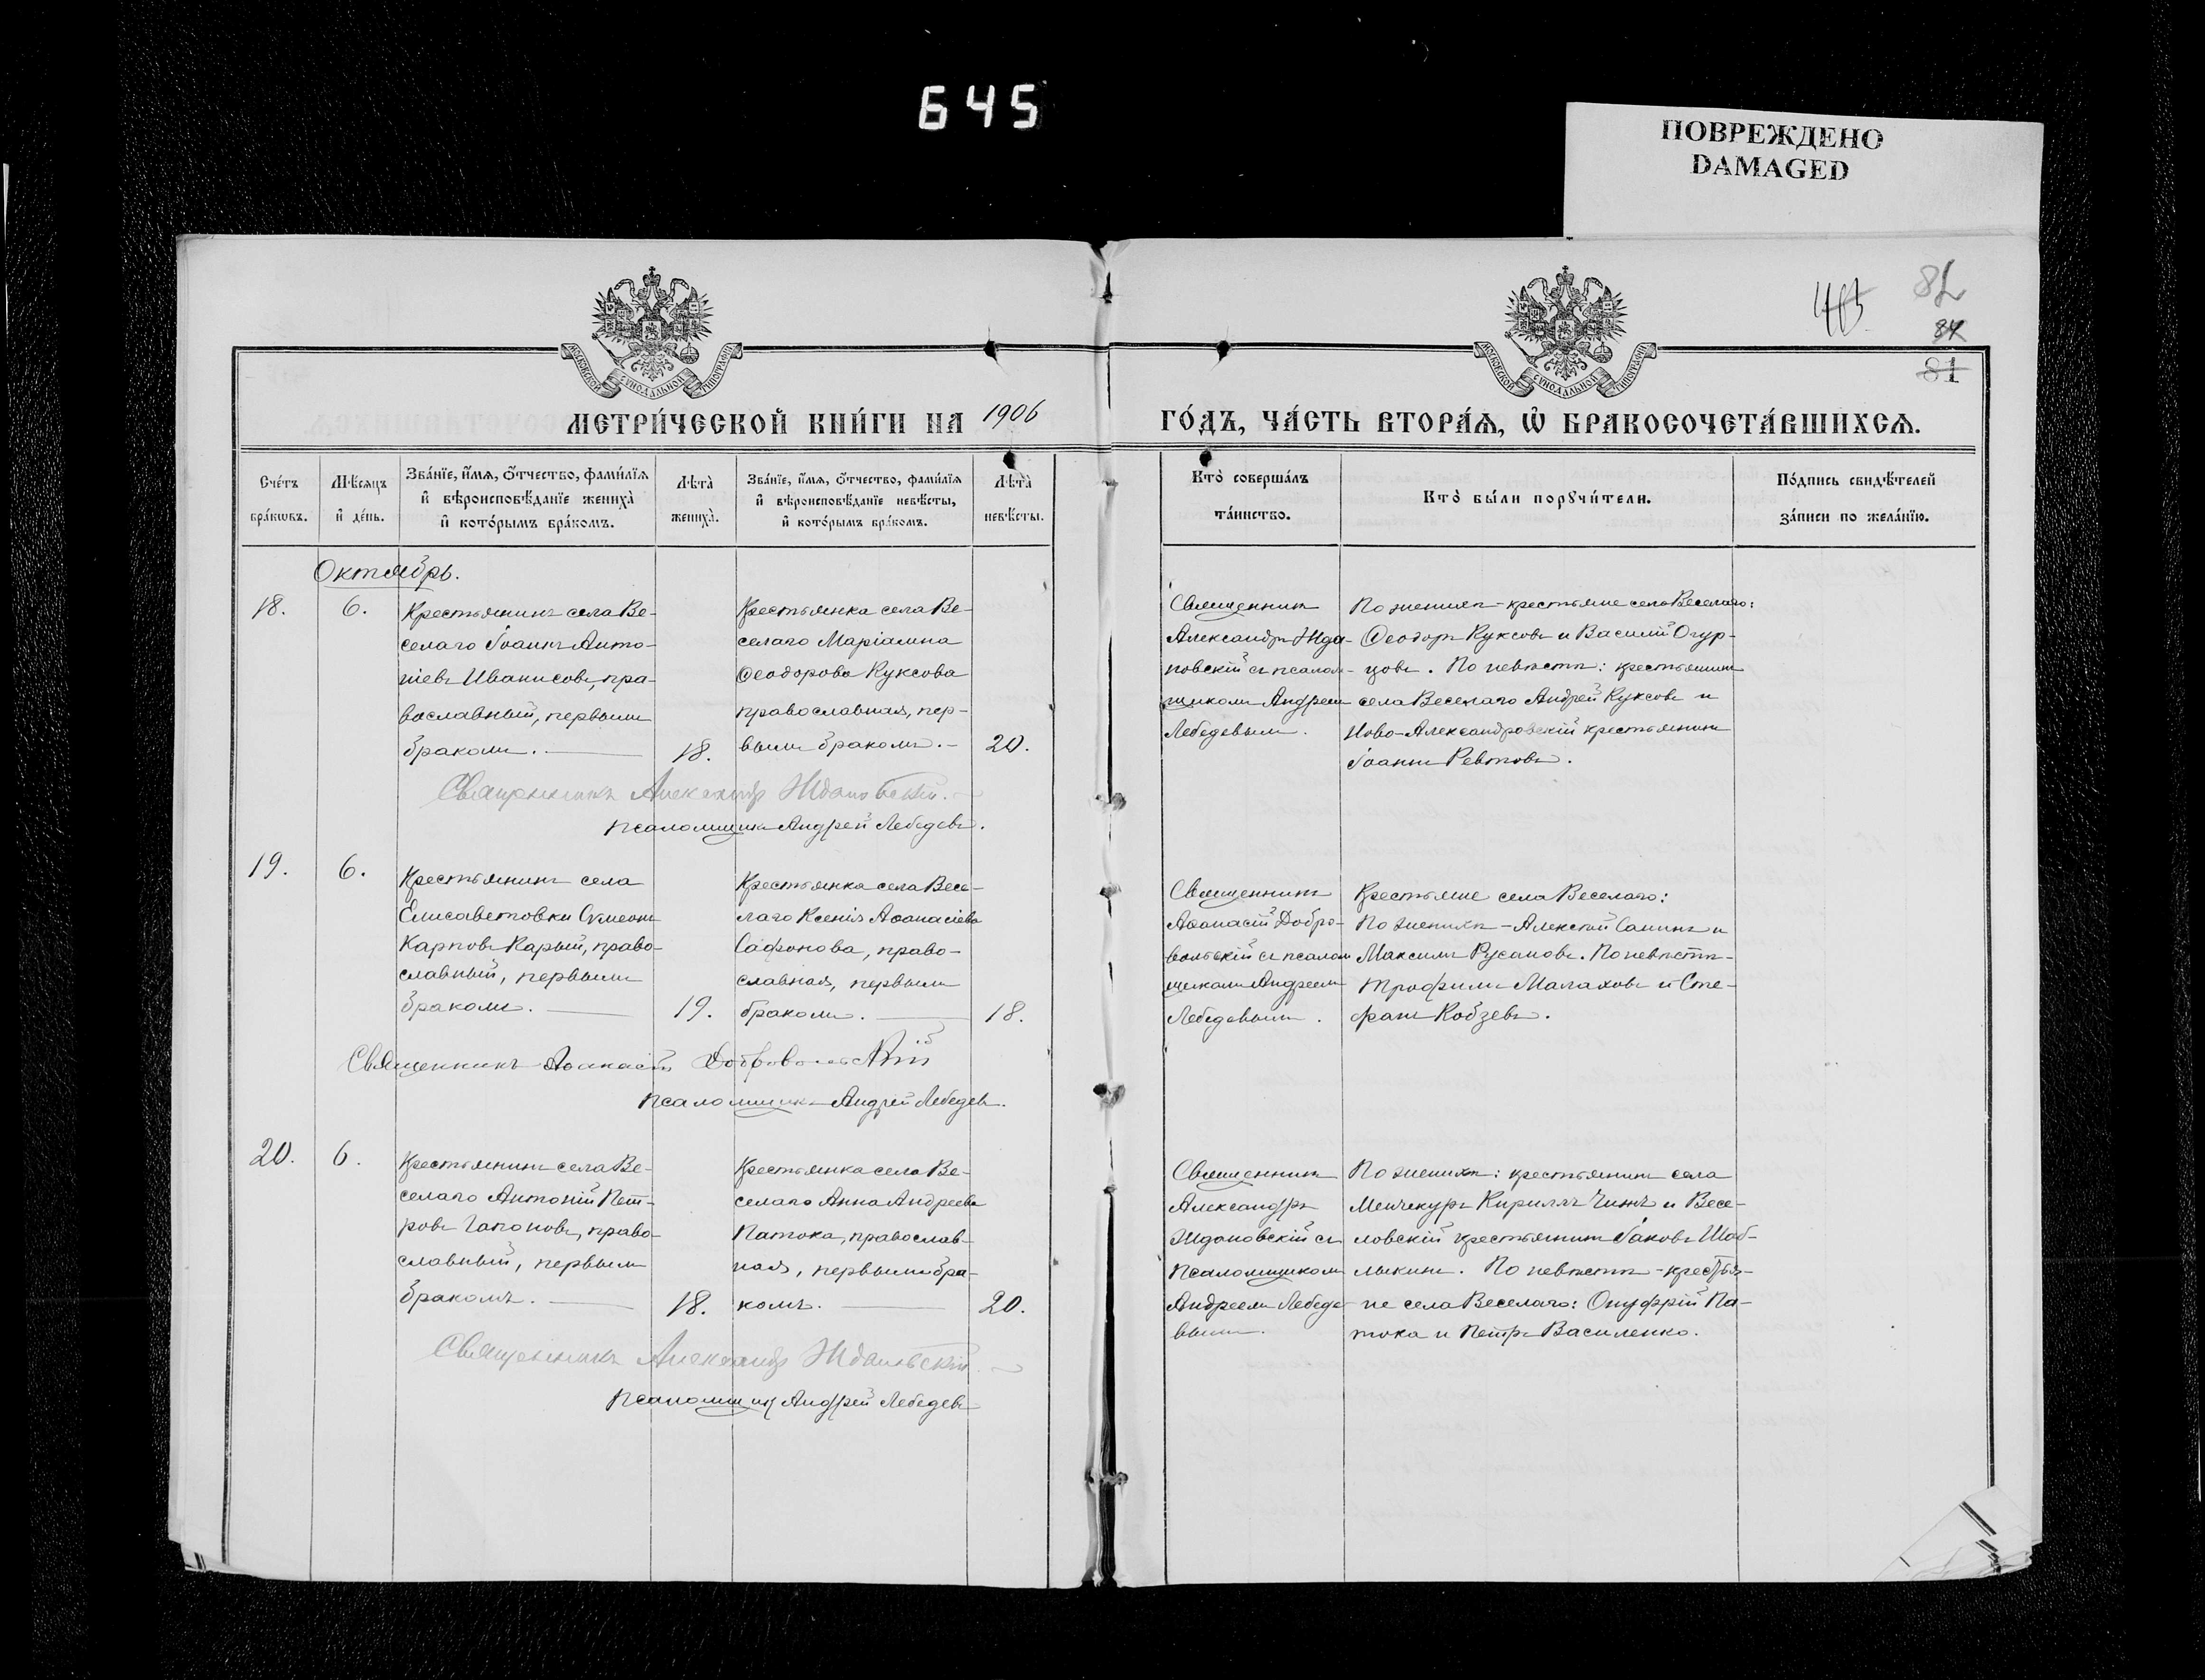 645
ПОВРЕЖДЕНО
DAMAGED
82
84
81
МОСКОВСКОЙ СУНОДАЛЬНОЙ ТИПОГРАФІИ
МОСКОВСКОЙ СУНОДАЛЬНОЙ ТИПОГРАФІИ
МЕТРИ́ЧЕСКОЙ КНИ́ГИ НА 1906
ГО́ДЪ, ЧА́СТЬ ВТОРА́Ѧ, Ѡ҆ БРАКОСОЧЕТА́ВШИХСѦ.
Сче́тъ
бра́кѡвъ.
Мѣ́сѧцъ
и҆ де́нь.
Зва́нїе, и҆́мѧ, ѻ҆́тчество, фами́лїѧ
и҆ вѣроисповѣ́данїе жениха̀
и҆ кото́рымъ бра́комъ.
Лѣ́та̀
жениха̀.
Зва́нїе, и҆́мѧ, ѻ҆́тчество, фами́лїѧ
и҆ вѣроисповѣ́данїе невѣ́сты,
и҆ кото́рымъ бра́комъ.
Лѣ́та̀
невѣ́сты.
Кто̀ соверша́лъ
та́инство.
Кто̀ бы́ли порꙋчи́тели.
По́дпись свидѣ́телей
за́писи по жела́нїю.
Октябрь.
18.
6.
Крестьянинъ села Ве-
селаго Іоаннъ Анто-
ніевъ Иванисовъ, пра-
вославный, первымъ
бракомъ.
18.
Крестьянка села Ве-
селаго Маріамна
Ѳеодорова Куксова
православная, пер-
вымъ бракомъ.-
20.
Священникъ
Александръ Жда-
новскій съ псалом-
щикомъ Андреемъ
Лебедевымъ.
По женихѣ-крестьяне села Веселаго:
Ѳеодоръ Куксовъ и Василій Огур-
цовъ. По невѣстѣ: крестьянинъ
села Веселаго Андрей Куксовъ и
Ново-Александровскій крестьянинъ
Іоаннъ Ревтовъ.
Священникъ Александръ Ждановскій.
Псаломщикъ Андрей Лебедевъ.
19.
6.
Крестьянинъ села
Елисаветовки Сѵмеонъ
Карповъ Карый, право-
славный, первымъ
бракомъ.
19.
Крестьянка села Весе-
лаго Ксенія Аѳанасіева
Сафонова, право-
славная, первымъ
бракомъ.
18.
Священникъ
Аѳанасій Добро-
вольскій съ псалом
щикомъ Андреемъ
Лебедевымъ.
Крестьяне села Веселаго:
По женихѣ-Алексѣй Санинъ и
Максимъ Русановъ. По невѣстѣ-
Трофимъ Малаховъ и Сте-
фанъ Кобзевъ.
Священникъ Аѳанасій Добровольскій
Псаломщикъ Андрей Лебедевъ.
20.
6.
Крестьянинъ села Ве-
селаго Антоній Пет-
ровъ Гапоновъ, право-
славный, первымъ
бракомъ.
18.
Крестьянка села Ве-
селаго Анна Андреева
Патока, православ-
ная, первымъ бра-
комъ.
20.
Священникъ
Александръ
Ждановскій съ
псаломщикомъ
Андреемъ Лебеде-
вымъ.
По женихѣ: крестьянинъ села
Менчекуръ Кириллъ Чижъ и Весе-
ловскій крестьянинъ Іаковъ Шаб-
лыкинъ. По невѣстѣ-крестья-
не села Веселаго: Онуфрій Па-
тока и Петръ Василенко.
Священникъ Александръ Ждановскій.
Псаломщикъ Андрей Лебедевъ